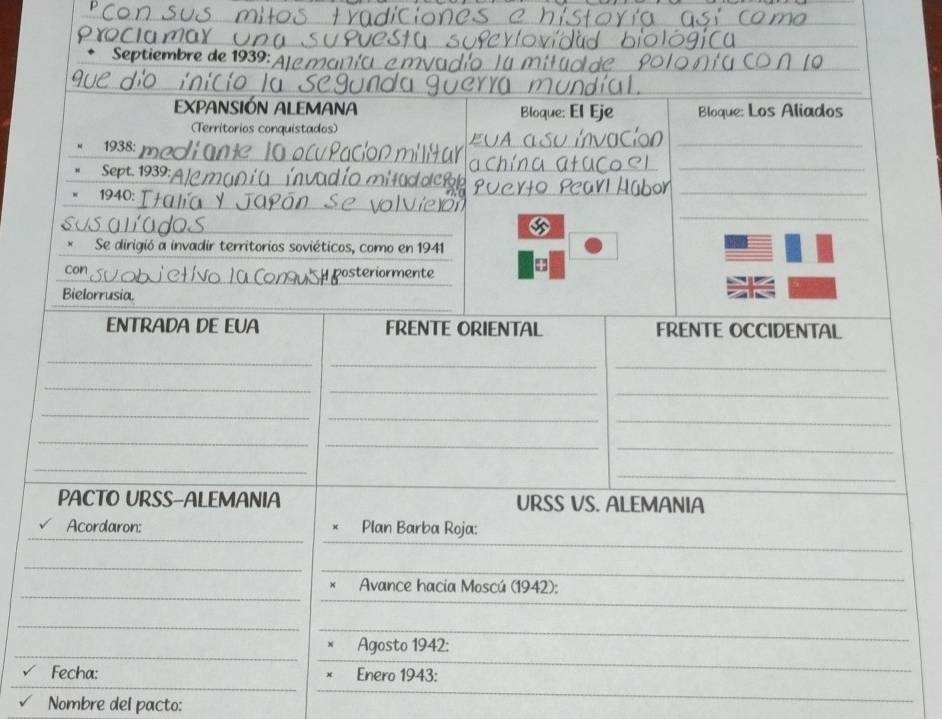 con sus mitos tradiciones e historia así como
proclamar una supuesta superioridad biológica
Septiembre de 1939: Alemania emvadio la mitadde polonia con lo
que dio inicio la segunda guerra mundial.
EXPANSIÓN ALEMANA
(Territorios conquistados)
× 1938: mediante la ocupacion militar
× Sept. 1939: Alemania invadio mitaddepolonia
× 1940: Italia y Japón se volvieron
sus aliados
× Se dirigió a invadir territorios soviéticos, como en 1941
con su objetivo la conquista posteriormente
Bielorrusia.
Bloque: El Eje
EUA a su invacion
a china ataco el
puerto Pearl Habor
Bloque: Los Aliados
ENTRADA DE EUA
FRENTE ORIENTAL
FRENTE OCCIDENTAL
PACTO URSS-ALEMANIA
✓ Acordaron:
✓ Fecha:
✓ Nombre del pacto:
URSS VS. ALEMANIA
× Plan Barba Roja:
× Avance hacia Moscú (1942):
× Agosto 1942:
× Enero 1943: